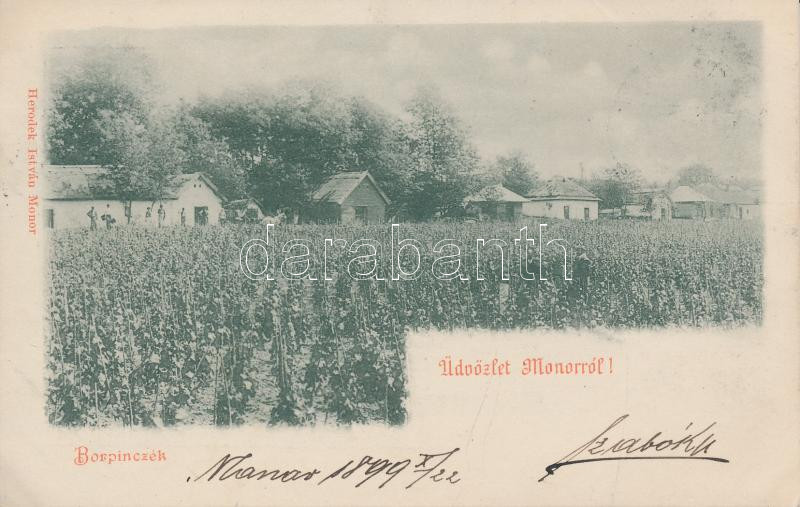 Herodek István Monor
darabanth
Üdvözlet Monorról!
Borpinczék
Monor 1899 X/22